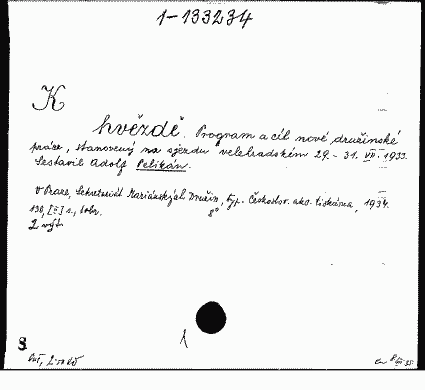 1-133234
K
hvězdě. Program a cíl nové družinské
práce, stanovený na sjezdu velehradském 29.-31. VII. 1933.
Sestavil Adolf Pelikán.
V Praze, Sekretariát Mariánských Družin, typ. Českoslov. akc. tiskárna, 1934.
130, [II] s., obr. 8°
2. vyd.
8
1